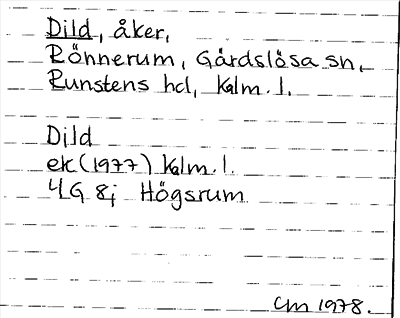 Dild, åker,
Rönnerum, Gärdslösa sn,
Runstens hd, Kalm. l.
Dild
ek (1977) Kalm. l.
4G 8j Högsrum
CM 1978.